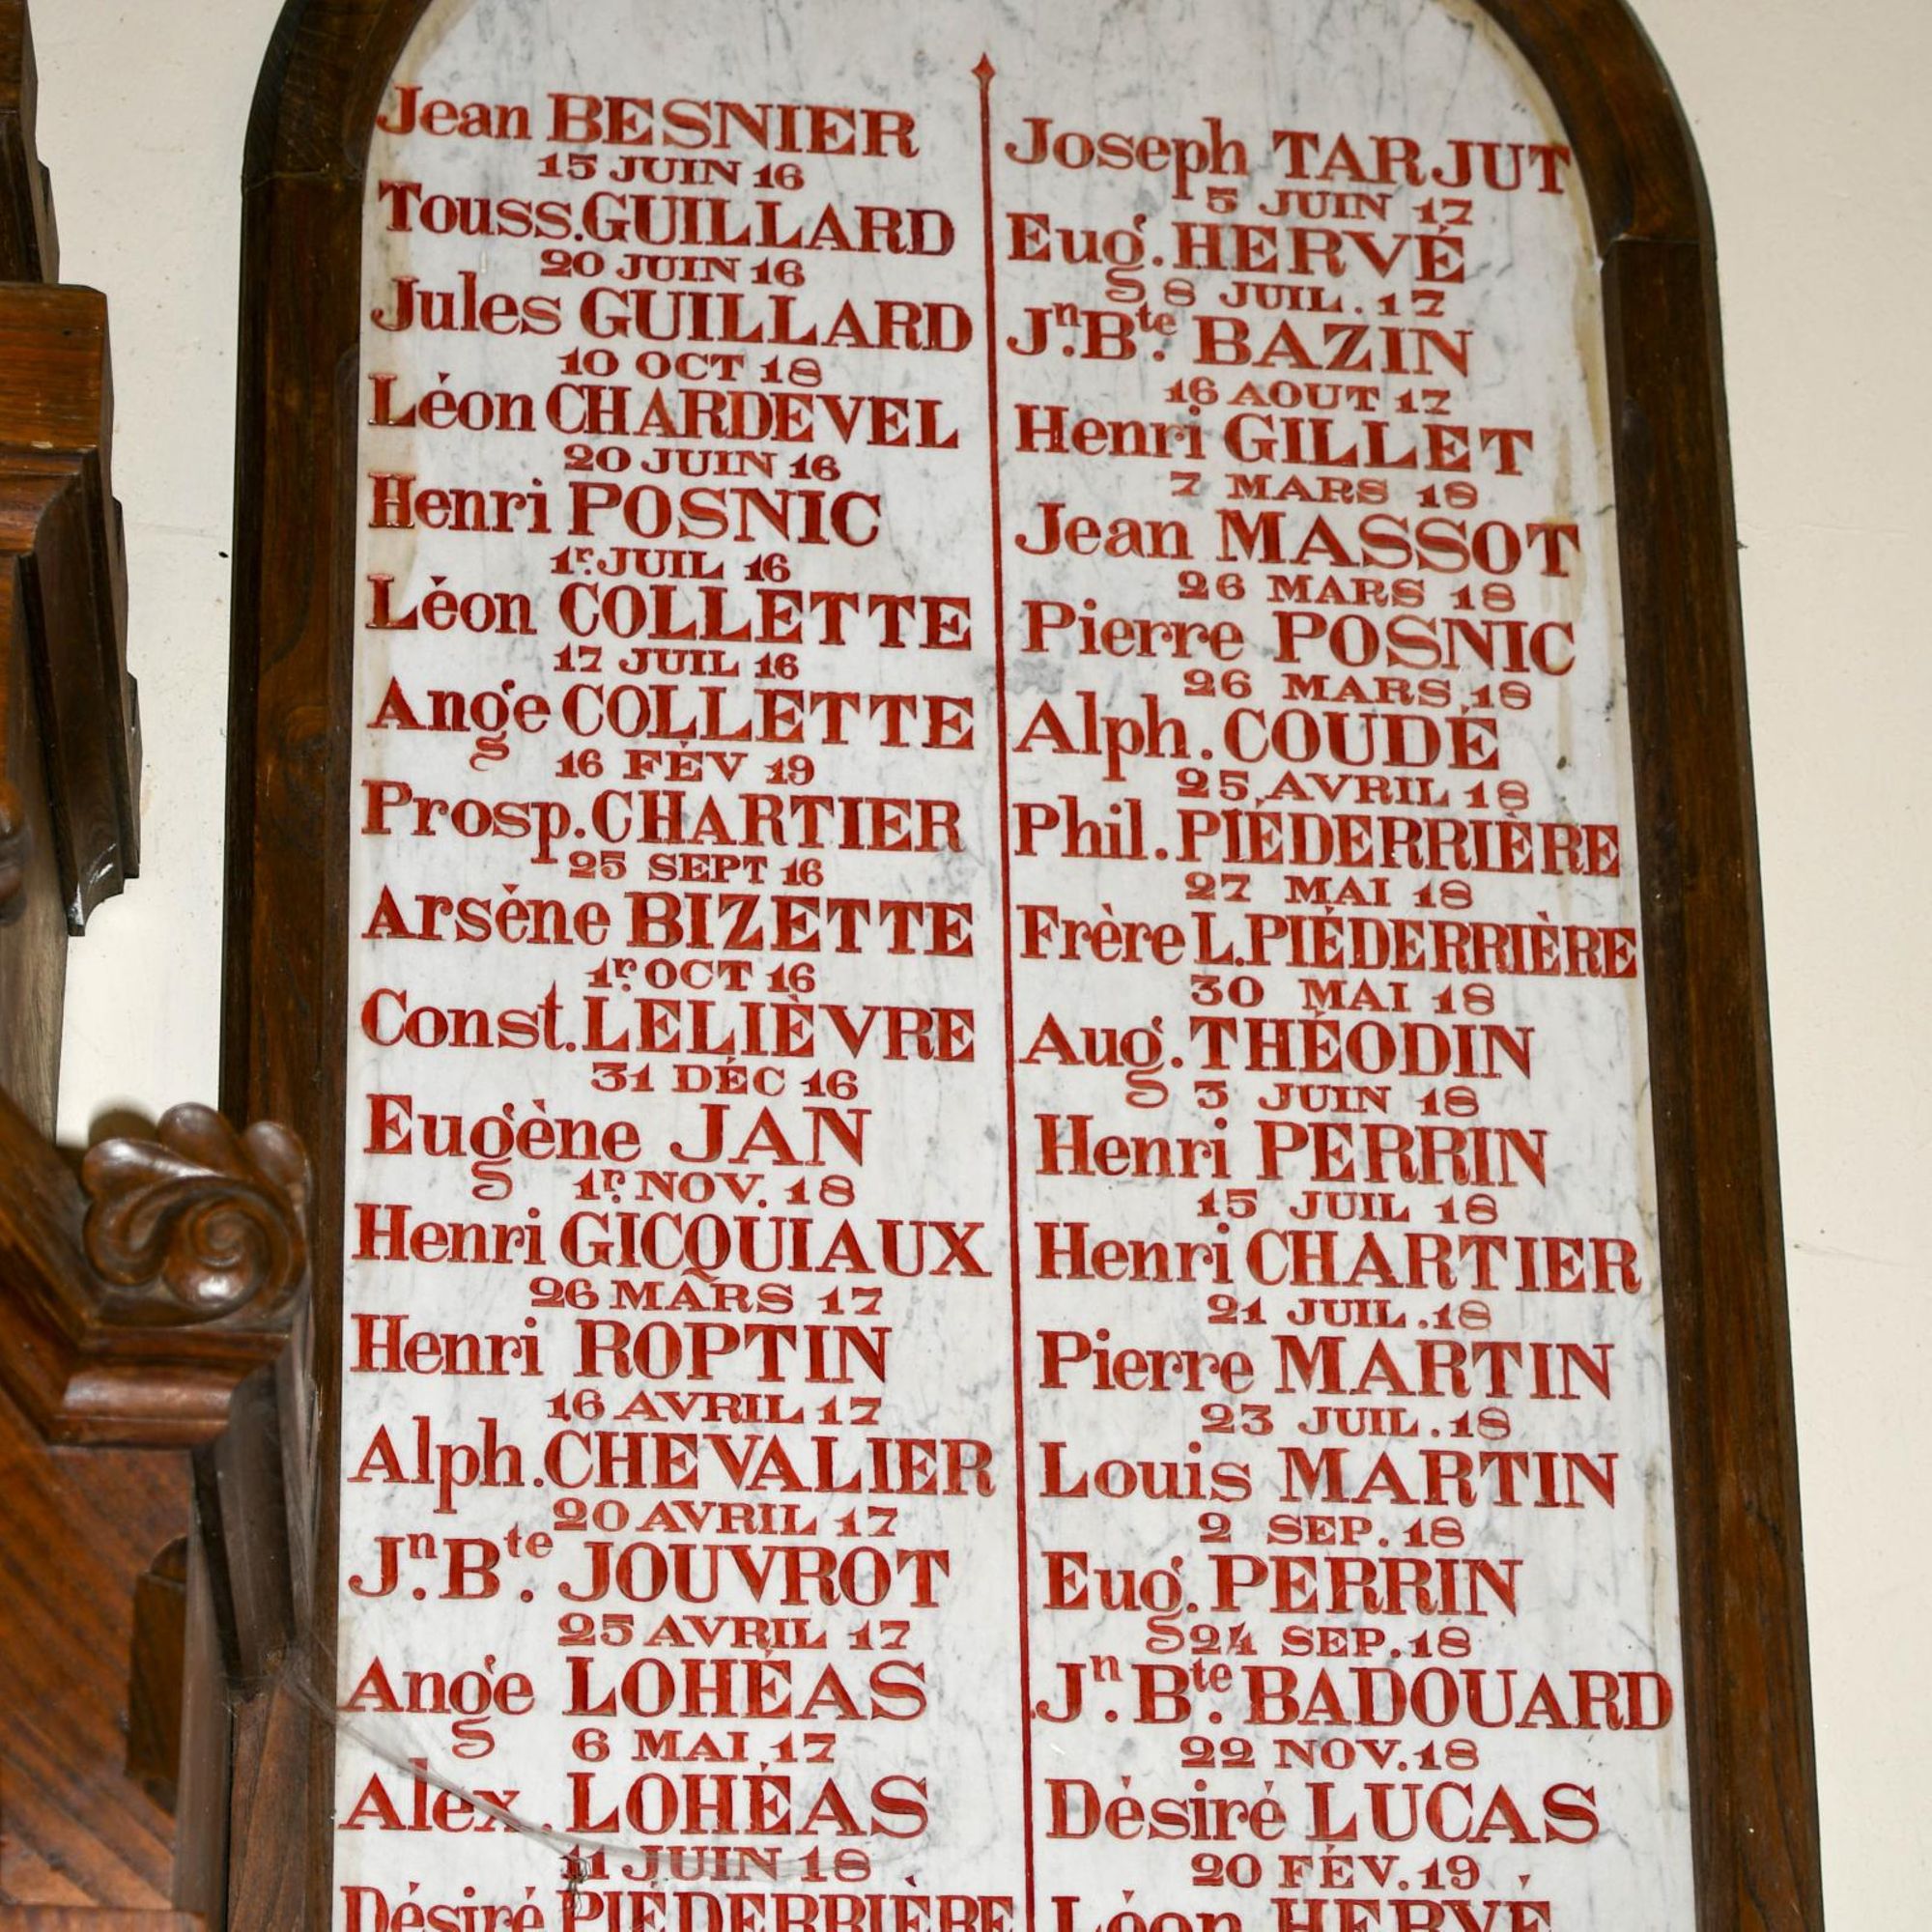 Jean BESNIER
15 JUIN 16
Touss. GUILLARD
20 JUIN 16
Jules GUILLARD
10 OCT 18
Léon CHARDEVEL
20 JUIN 16
Henri POSNIC
1r. JUIL 16
Léon COLLETTE
17 JUIL 16
Ange COLLETTE
16 FÉV 19
Prosp. CHARTIER
25 SEPT 16
Arsène BIZETTE
1r. OCT 16
Const. LELIÈVRE
31 DÉC 16
Eugène JAN
1r. NOV. 18
Henri GICQUIAUX
26 MARS 17
Henri ROPTIN
16 AVRIL 17
Alph. CHEVALIER
20 AVRIL 17
Jn. Bte. JOUVROT
25 AVRIL 17
Ange LOHÉAS
6 MAI 17
Alex. LOHÉAS
11 JUIN 18
Désiré PIÉDERRIÈRE
Joseph TARJUT
5 JUIN 17
Eug. HERVÉ
8 JUIL. 17
Jn. Bte. BAZIN
16 AOUT 17
Henri GILLET
7 MARS 18
Jean MASSOT
26 MARS 18
Pierre POSNIC
26 MARS 18
Alph. COUDÉ
25 AVRIL 18
Phil. PIÉDERRIÈRE
27 MAI 18
Frère L. PIÉDERRIÈRE
30 MAI 18
Aug. THÉODIN
3 JUIN 18
Henri PERRIN
15 JUIL 18
Henri CHARTIER
21 JUIL. 18
Pierre MARTIN
23 JUIL. 18
Louis MARTIN
2 SEP. 18
Eug. PERRIN
24 SEP. 18
Jn. Bte. BADOUARD
22 NOV. 18
Désiré LUCAS
20 FÉV. 19
Léon HERVÉ